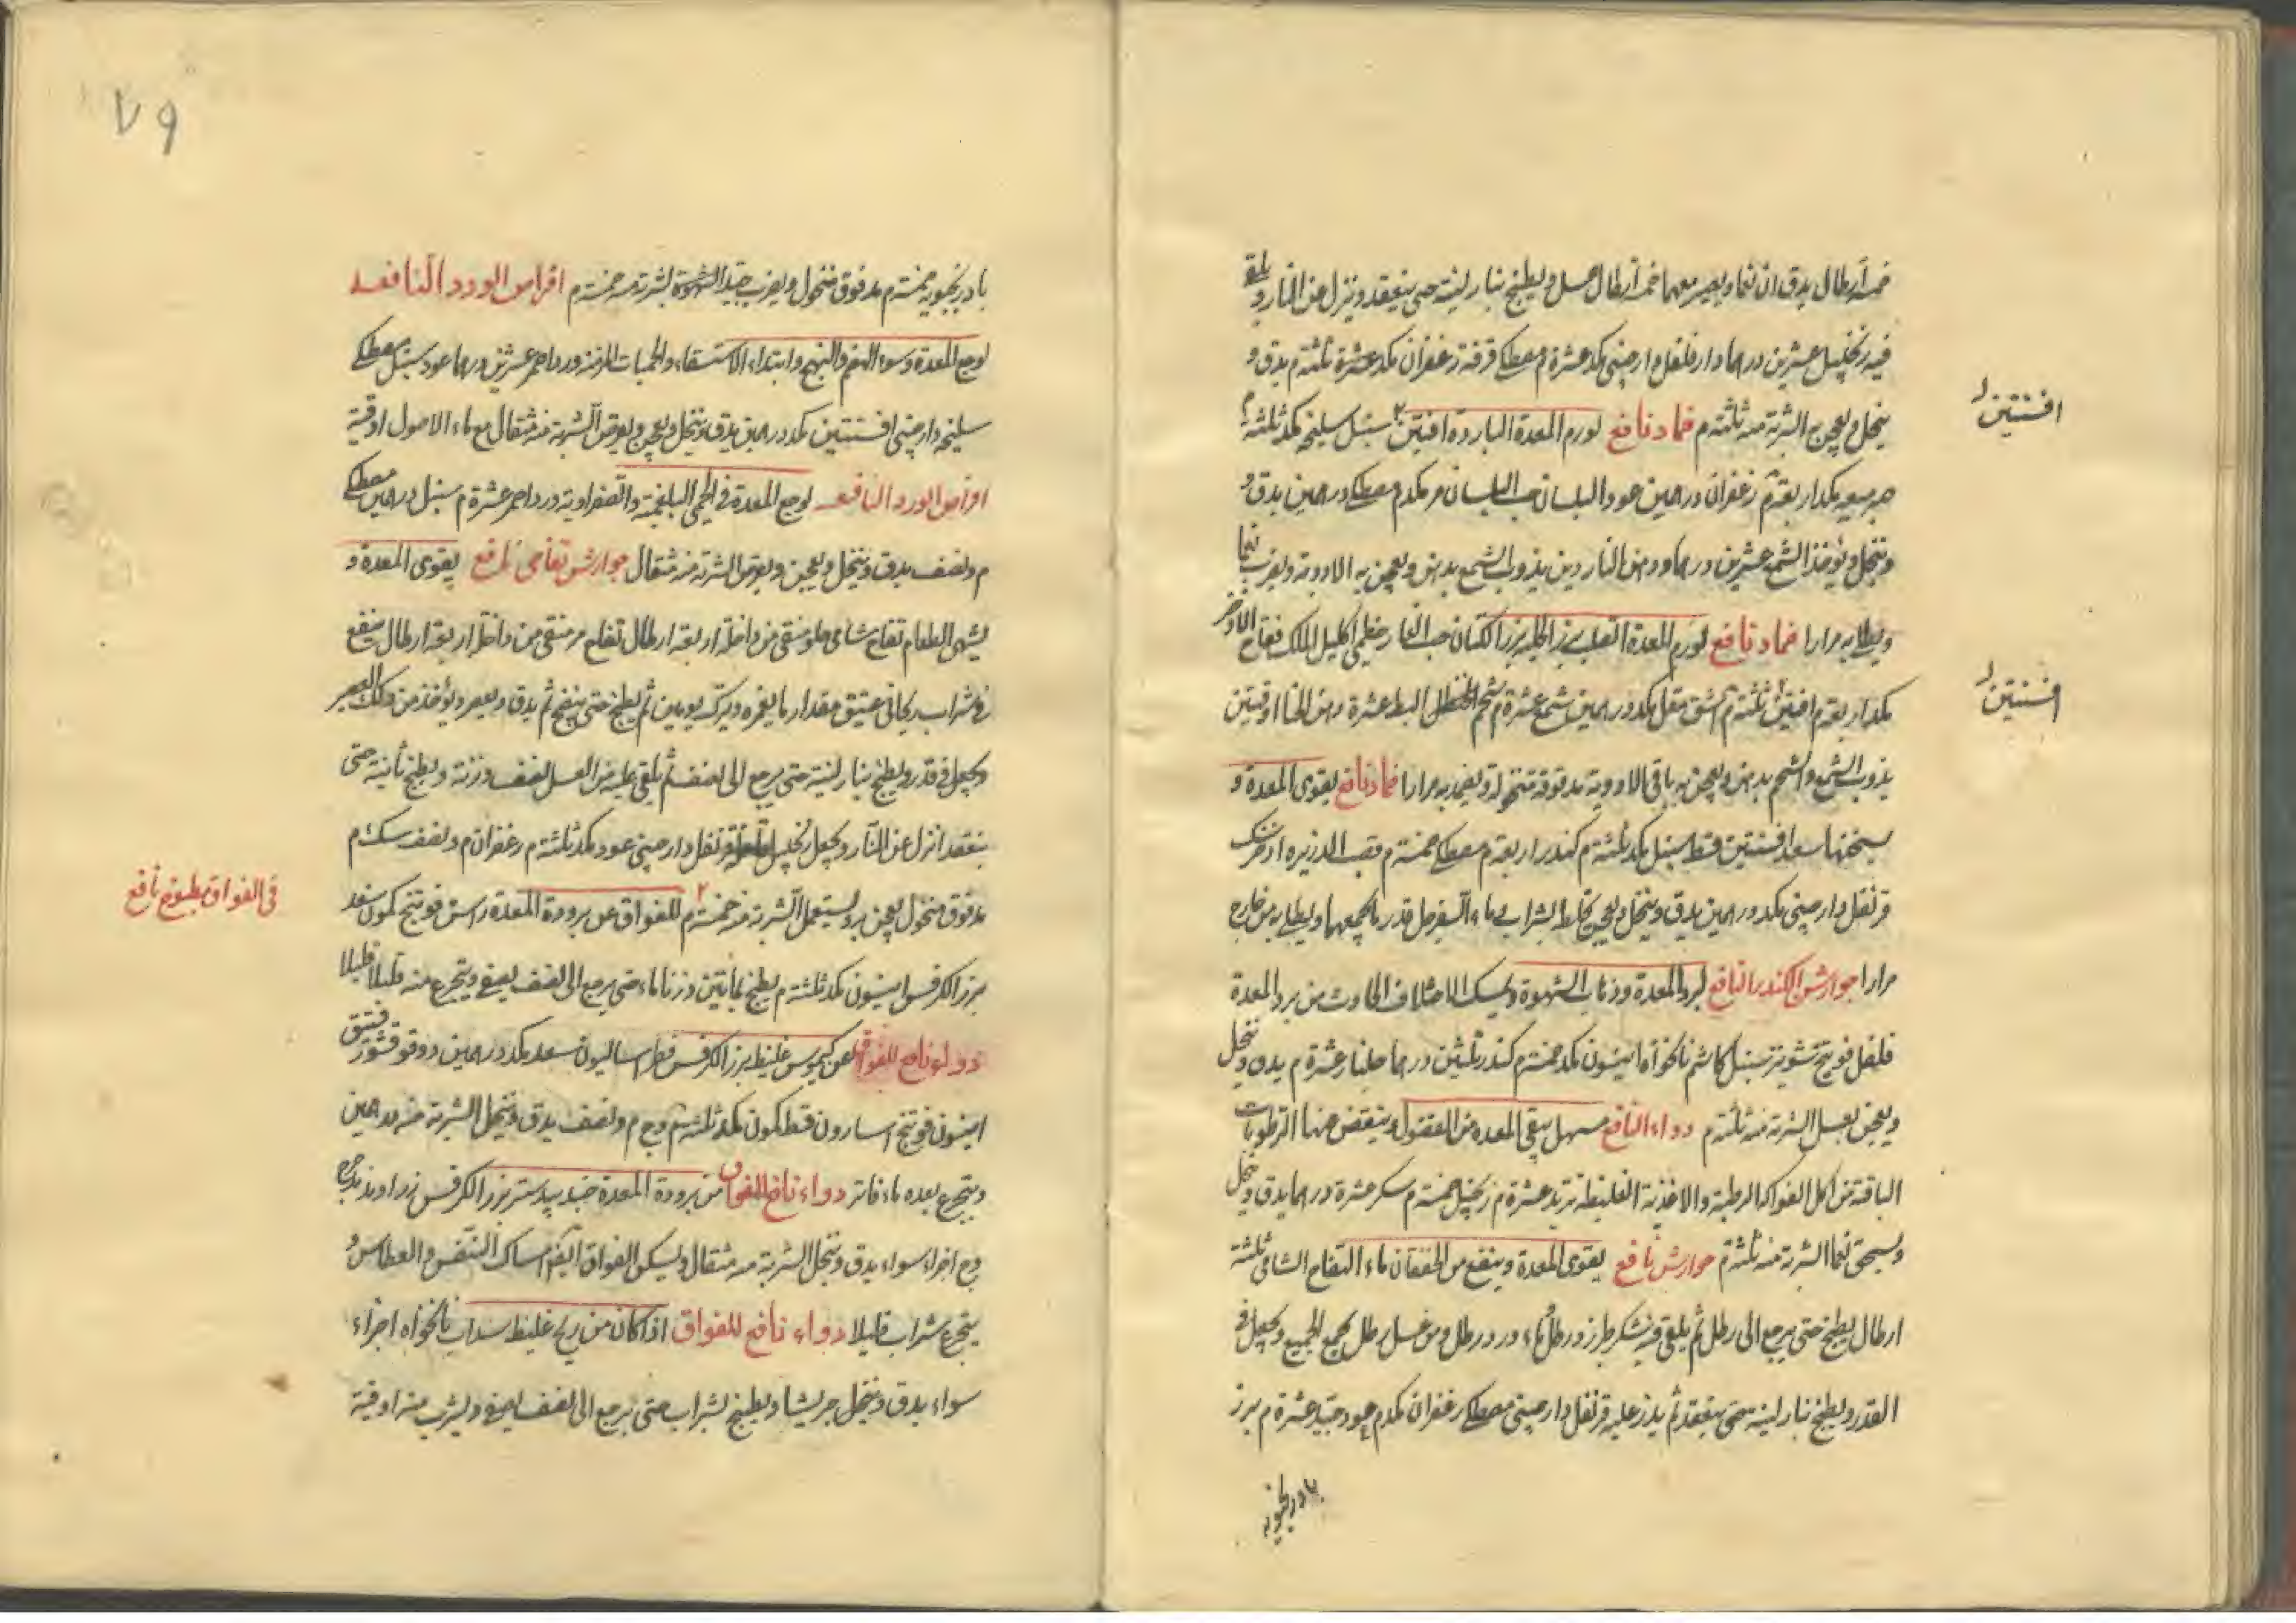 خمسة أرطال يدق ناعما ويعصر معها خمسة أرطال عسل ويطبخ بنار لينة حتى ينعقد وينزل عن النار ويلقى
فيه زنجبيل عشرين درهما دارفلفل دارصيني مكد عشرة م مصطكى قرفة زعفران مكد عشرة ثلثة م يدق و
ينخل ويعجن به الشربة منه ثلثة م ضماد نافع لورم المعدة الباردة افنتين سنبل سليخه مكد ثلثة م
صبر ميعه مكد اربعة م زعفران درهمين عود البلسان حب البلسان مر مكد م مصطكى درهمين يدق و
وينخل ويؤخذ الشمع عشرين درهما ودهن الناردين يذوب الشمع بدهن ويعجن به الادوية ويضرب نعما
ويطلا به مرارا ضماد نافع لورم المعدة الصلب بزر الحلبه بزر الكتان حب الغار خطمى اكليل الملك فقاح الاذخر
مكد اربعة م افنتين ثلثة م اشق مقل مكد درهمين شمع عشرة م شحم الحنظل البط عشرة دهن الحنا اوقيتين
يذوب الشمع والشحم بدهن ويعجن به باقى الادوية مدقوقة منخولة ويضمد به مرارا ضماد نافع يقوى المعدة و
يسخنها سعد افسنتين قسط سنبل مكد ثلثة م كندر اربعة م مصطكى خمسة م قصب الذريره
قرنفل دارصينى مكد درهمين يدق وينخل ويعجن بخلط الشراب بماء السفرجل قدر ما يجمعها ويطلا به من خارج
مرارا جوارش الكندر النافع لبرد المعدة وذهاب الشهوة ويمسك الاختلاف الحادث من برد المعدة
فلفل فوينج شونيز سنبل كاشم نانخواه انيسون مكد خمسة م كندر ثلثين درهما جلنار عشرة م يدق وينخل
ويعجن بعسل الشربة منه ثلثة م دواء النافع مسهل ينقى المعدة من الفضول وينقص منها الرطوبات
الباقة من اكل الفواكه الرطبة والاغذية الغليظة تربد عشرة م زنجبيل خمسة م سكر عشرة درهما يدق وينخل
ويسحق نعما الشربة منه ثلثة م جوارش نافع يقوى المعدة وينفع من الخفقان ماء التفاح الشامى ثلثة
ارطال يطبخ حتى يرجع الى رطل ثم يلقى فيه سكر طبرزد رطل ماء ورد رطل ومن عسل رطل يجمع الجميع ويجعل في
القدر ويطبخ بنار لينه حتى ينعقد ثم يذر عليه قرنفل دارصينى مصطكى زعفران مكد م عود جيد عشرة م بزر
بادرنجبويه
افسنتين
افسنتين
٧٩
بادرنجبويه خمسة م مدقوق منخول ويضرب جيدا الشربة منه خمسة م اقراص الورد النافعه
لوجع المعدة وسوء الهضم والتهيج وابتداء الاستسقاء والحميات المزمنة ورد احمر عشرين درهما عود سنبل مصطكى
سليخه دارصينى افسنتين مكد درهمين يدق وينخل ويعجن ويقرص الشربة منه مثقال مع ماء الاصول اوقية
اقراص الورد النافعه لوجع المعدة في الحمى البلغمية والصفراوية ورد احمر عشرة م سنبل درهمين مصطكى
م ونصف يدق وينخل ويعجن ويقرص الشربة منه مثقال جوارش تفاحى نافع يقوى المعدة و
يشهى الطعام تفاح شامى حلو منقى من داخلة اربعة ارطال تفاح مر منقى من داخلة اربعة ارطال ينقع
في شراب ريحاني عتيق مقدار ما يغمره ويترك يومين ثم يطبخ حتى ينضج ثم يدق ويعصر ويؤخذ من ذلك العصر
ويجعل في قدر ويطبخ بنار لينة حتى يرجع الى نصف ثم يلقى عليه من العسل نصف وزنة ويطبخ ثانية حتى
ينعقد انزل عن النار ويجعل زنجبيل قرنفل دارصينى عود مكد ثلثة م زعفران م ونصف سك م
مدقوق منخول يعجن به ويستعمل الشربة منه خمسة م للفواق عن برودة المعدة راسن فوتنج كمون سعد
بزر الكرفس انيسون مكد ثلثة م يطبخ بمائتين وزنا ماء حتى يرجع الى نصف يصفى ويتجرع منه قليلا قليلا
دواء نافع للفواق عن كيموس غليظ بزر الكرفس فطراساليون سعد مكد درهمين دوقو قشور فستق
انيسون فوتنج اسارون قسط كمون مكد ثلثة م وج م ونصف يدق وينخل الشربة منه درهمين
ويتجرع بعده ماء فاتر دواء نافع للفواق من برودة المعدة جندبيدستر بزر الكرفس زراوند مدحرج
وج اجزاء سواء يدق وينخل الشربة منه مثقال ويسكن الفواق ايضا امساك النفس والعطاس و
يتجرع شراب قليلا دواء نافع للفواق اذا كان من ريح غليظ سداب نانخواه اجزاء
سواء يدق وينخل جريشا ويطبخ بشراب حتى يرجع الى نصف يصفى ويشرب منه اوقية
في الفواق مطبوخ نافع